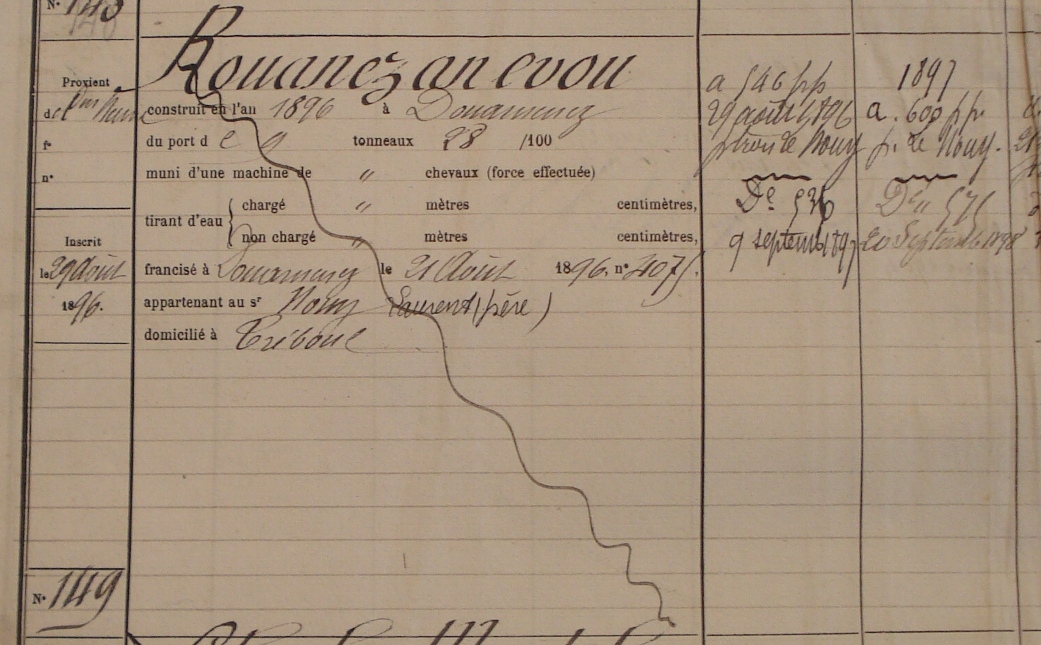 N° 148
Rouanez an evou
Provient
construit en l'an 1896 à Douarnenez
du port de 9 tonneaux 28 /100
f°
muni d'une machine de " chevaux (force effectuée)
n°
tirant d'eau { chargé " mètres centimètres,
non chargé " mètres centimètres,
Inscrit
le 29 Août
1896.
francisé à Douarnenez le 21 Août 1896. n° 2075.
appartenant au sr Laurent (père)
domicilié à Tréboul
a 546 pp
29 août 1896
De 536
9 septemb 1897
1897
a. 600 pp.
De " 575
20 Septemb 1898
N° 149